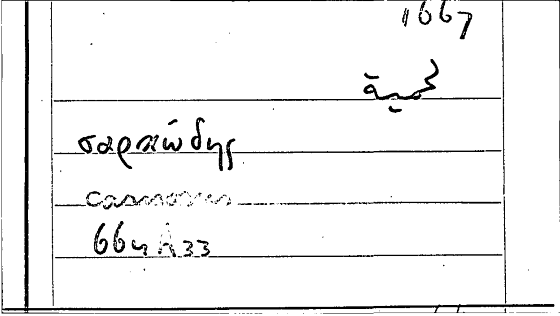 1667
لحمية
σαρκώδης
664 A 33